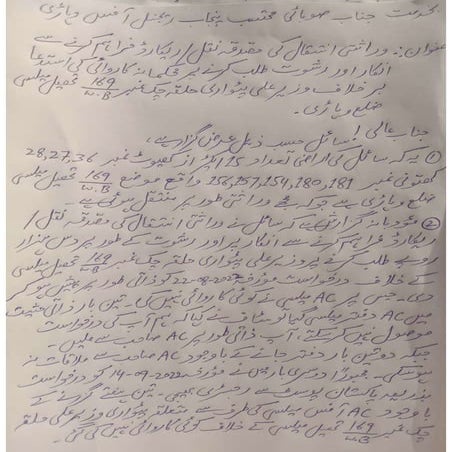 بخدمت جناب صوبائی محتسب پنجاب ریجنل آفس وہاڑی
عنوان:۔ وراثتی انتقال کی مصدقہ نقل/ریکارڈ فراہم کرنے سے
انکار اور رشوت طلب کرنے پر محکمانہ کاروائی کی استدعا
بر خلاف وزیر علی پٹواری حلقہ چک نمبر 169/W.B تحصیل میلسی
ضلع وہاڑی۔
جناب عالی! سائل حسب ذیل عرض گزار ہے۔
① یہ کہ سائل کی اراضی تعداد 15 از کھیوٹ نمبر 28,27,36
کھتونی نمبر 156,157,154,180,181 واقع موضع 169/W.B تحصیل میلسی
ضلع وہاڑی سے جو کہ وراثتی طور پر منتقل ہوئی ہے۔
② مؤدبانہ گزارش ہے کہ سائل نے وراثتی انتقال کی مصدقہ نقل/
ریکارڈ فراہم کرنے سے انکار پر اور رشوت کے طور پر دس ہزار
روپے طلب کرنے پر وزیر علی پٹواری حلقہ چک نمبر 169/W.B تحصیل میلسی
کے خلاف درخواست مورخہ 22-08-2022 کو ذاتی طور پر پیش ہو کر
دی۔ جس پر AC میلسی نے کوئی کاروائی نہیں کی۔ تین بار ذاتی حیثیت
میں AC دفتر میلسی گیا تو سٹاف نے کہا کہ ہم آپ کی درخواست
موصول نہیں کر سکتے، آپ ذاتی طور پر AC صاحب سے ملیں۔
جبکہ دو تین بار دفتر جانے کے باوجود AC صاحب سے ملاقات نہ
ہو سکی۔ مجبوراً دوسری بار میں نے مورخہ 14-09-2022 کو درخواست
بذریعہ پاکستان پوسٹ سے رجسٹری بھیجی۔ تین ہفتے گزرنے کے
باوجود AC آفس میلسی کی طرف سے متعلقہ پٹواری وزیر علی حلقہ
چک نمبر 169/W.B تحصیل میلسی کے خلاف کوئی کاروائی نہیں کی گئی۔